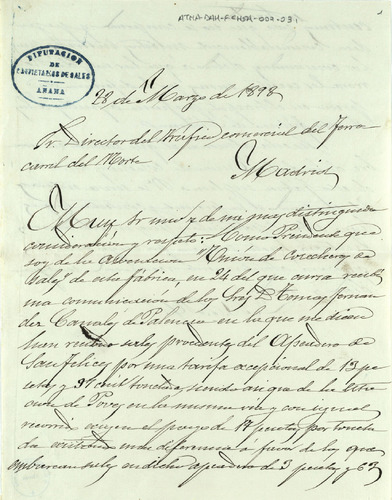 ATHA-DAH-FEHSA-002-03
DIPUTACION
DE
PROPIETARIOS DE SALES
AÑANA
28 de Marzo de 1898
Sr Director del Trafico comercial del Ferro
carril del Norte
Madrid
Muy Sr mio y de mi mas distinguida
consideración y respeto: Como Presidente que
soy de la Asociacion de
Sales de esta fábrica, en 24 del que cursa recibi
una comunicacion de los Sres D Tomas Fernan
dez Canales de Palencia en la que me dicen
han recibo sales procedentes del Apeadero de
San Felices por una tarifa excepcional de 13 pe
setas y 37 cent tonelada, siendo asi que de la esta
cion de Poves en la misma via y con igual
recorrido exigen el pago de 17 pesetas por tonela
da existiendo una diferencia á favor de los que
embarcan sales en dicho apeadero de 3 pesetas y 63